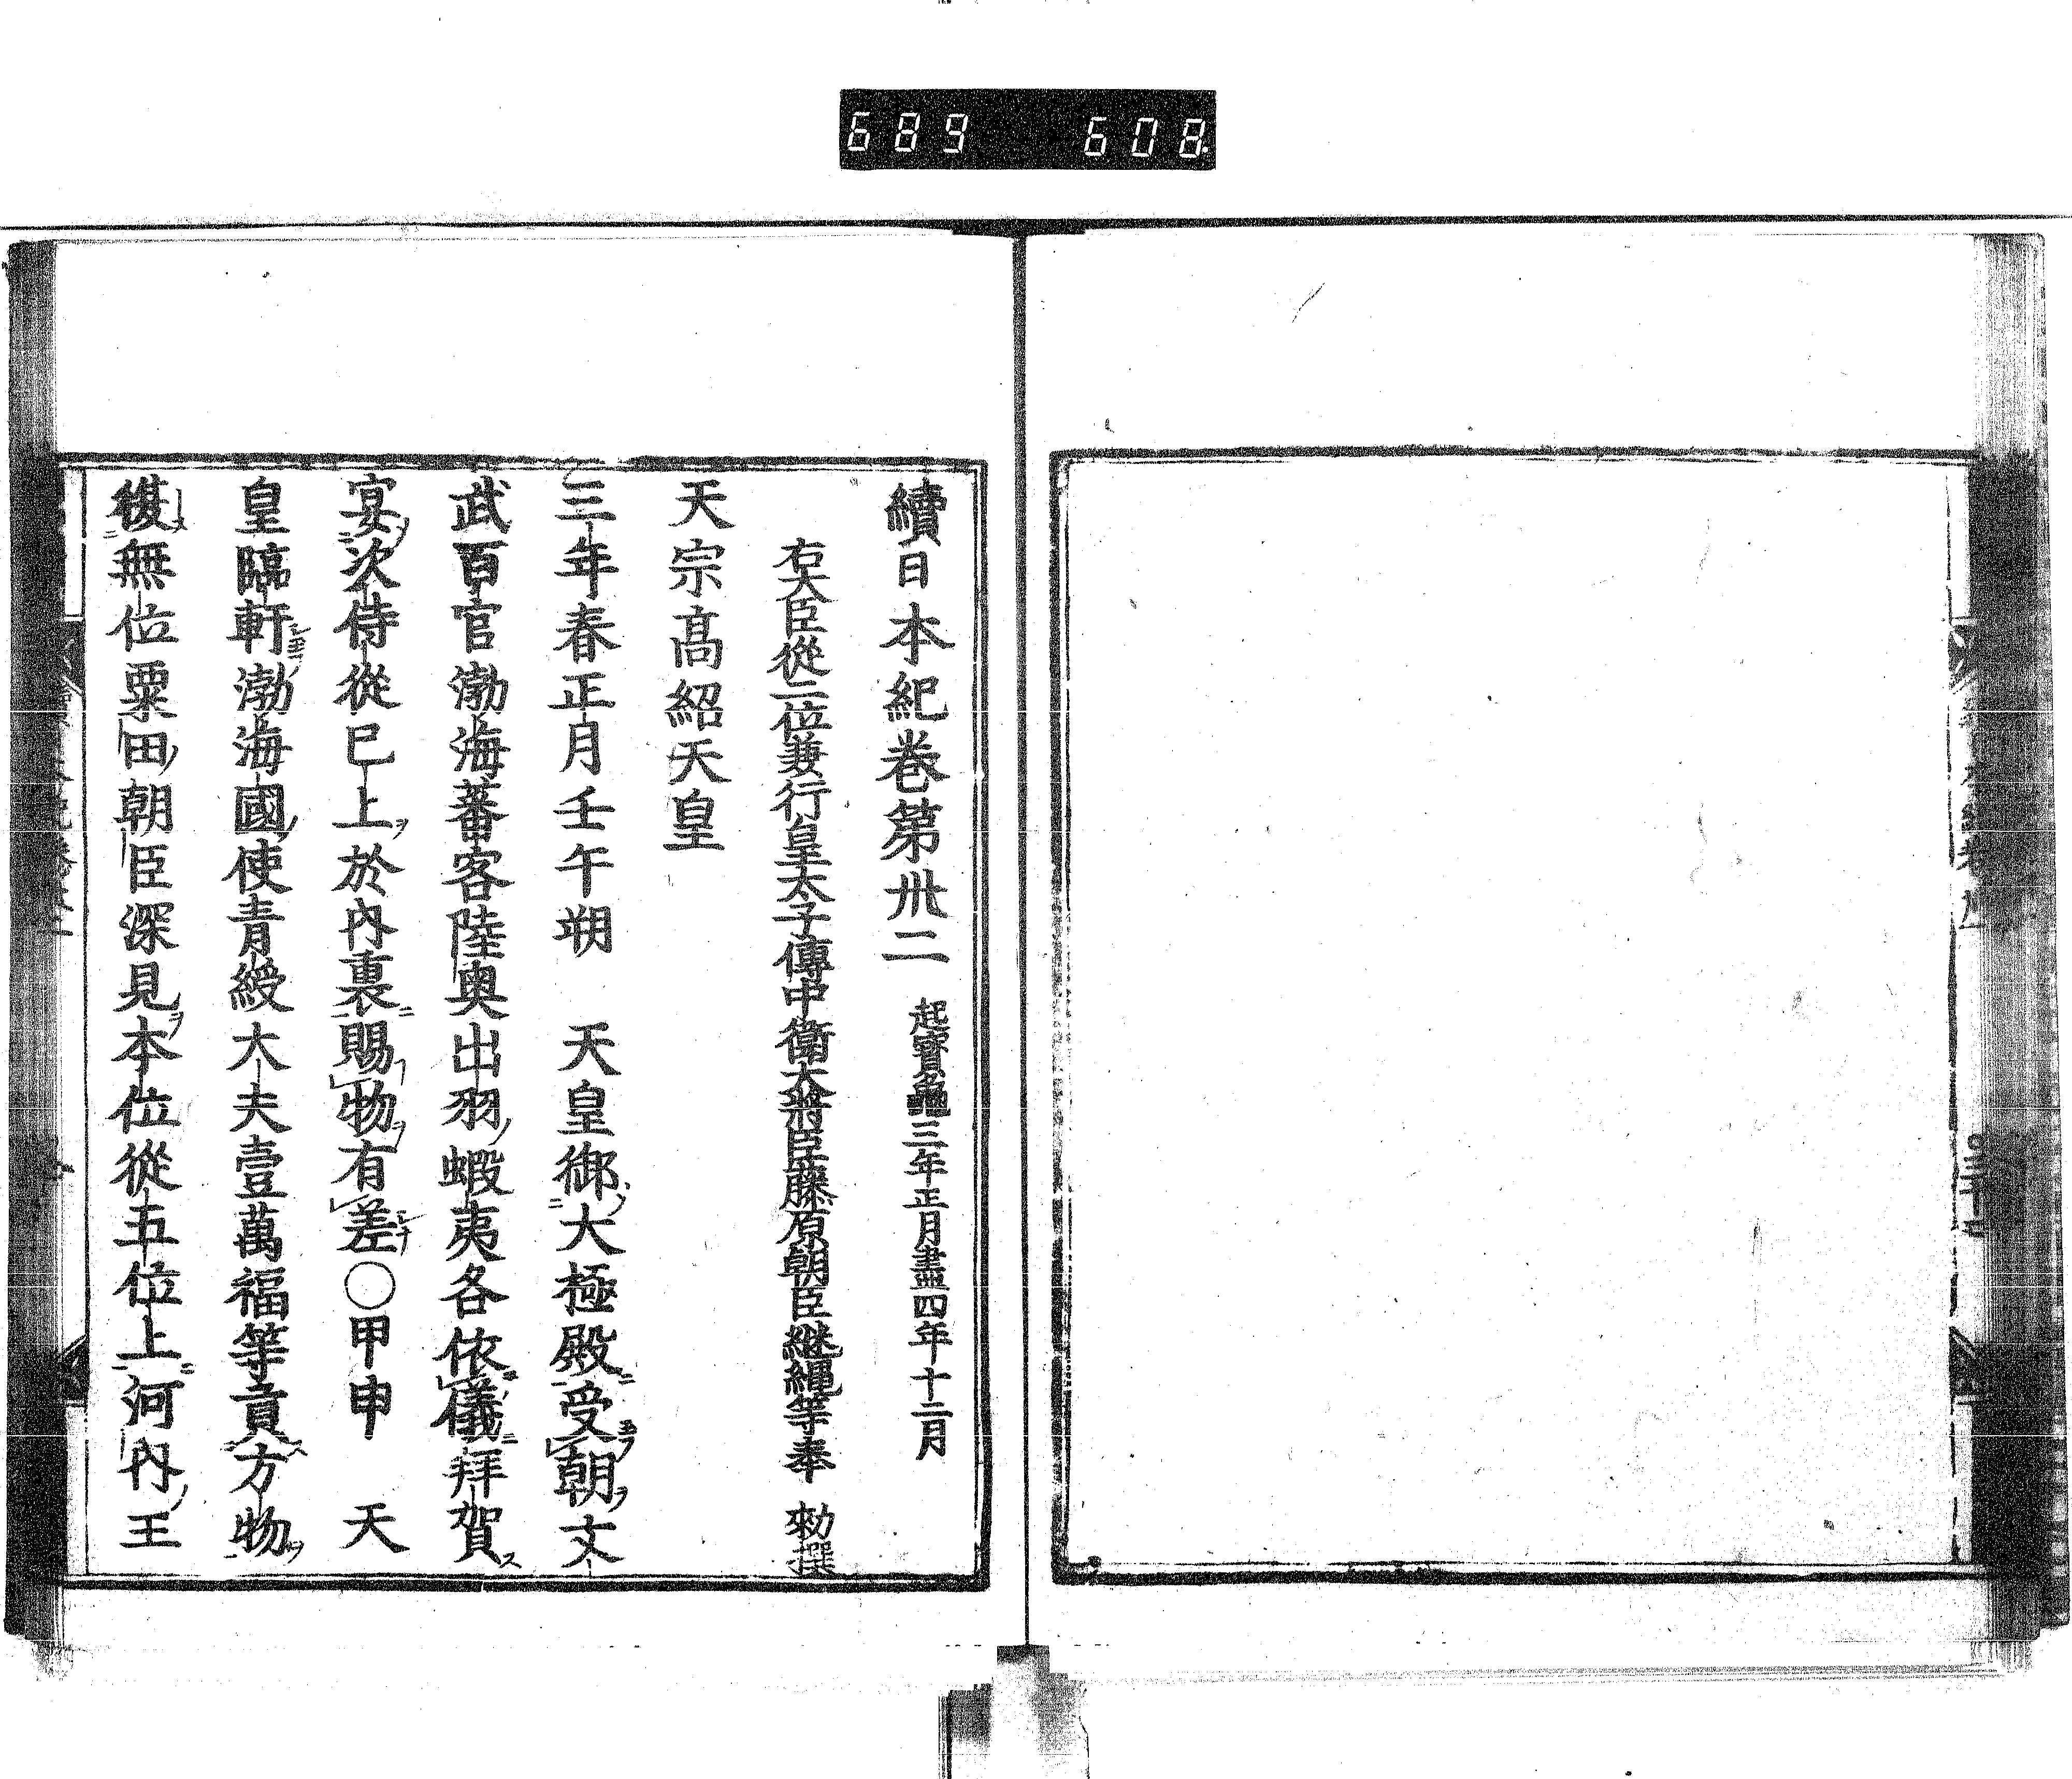 689 608
續日本紀巻第卅二 起寳龜三年正月盡四年十二月
右大臣從二位兼行皇太子傳中衛大將臣藤原朝臣継繩等奉 勅撰
天宗髙紹天皇
三年春正月壬午朔 天皇御大極殿受朝文
武百官渤海蕃客陸奥出羽蝦夷各依儀拜賀
宴次侍從已上於內裏賜物有差○甲申 天
皇臨軒渤海國使青綬大夫壹萬福等貢方物
復無位粟田朝臣深見本位從五位上河內王